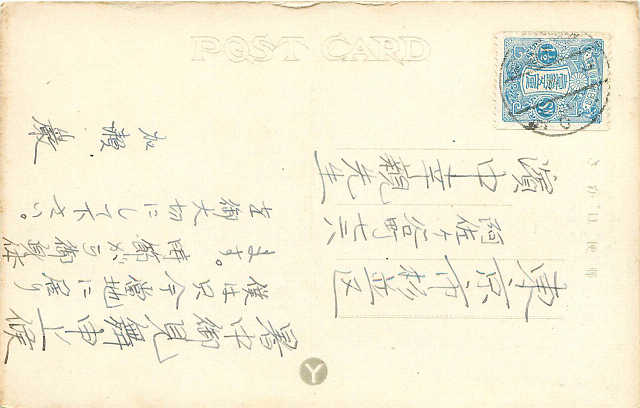 POST CARD
東京市杉並区
阿佐ヶ谷町七六
中幸親先生
暑中御見舞申上候
僕は只今當地に居り
ます。時節から御身体
を御大切にして下さい。
加瀬
Y